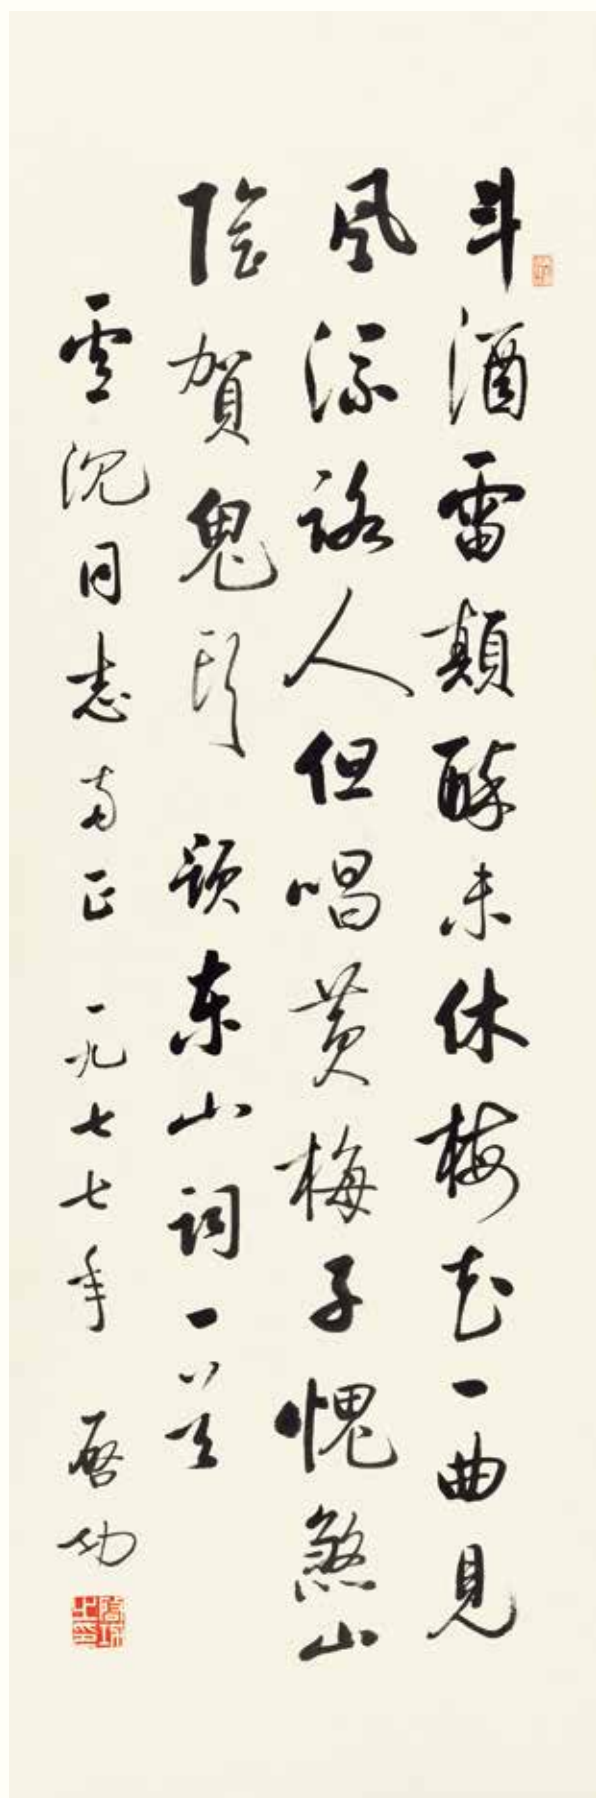 斗酒雷顛醉未休梅花一曲見
風流路人但唱黄梅子愧煞山
陰賀鬼頭 題東山詞一首
雲沉同志两正 一九七七年 啓功
啓功之印